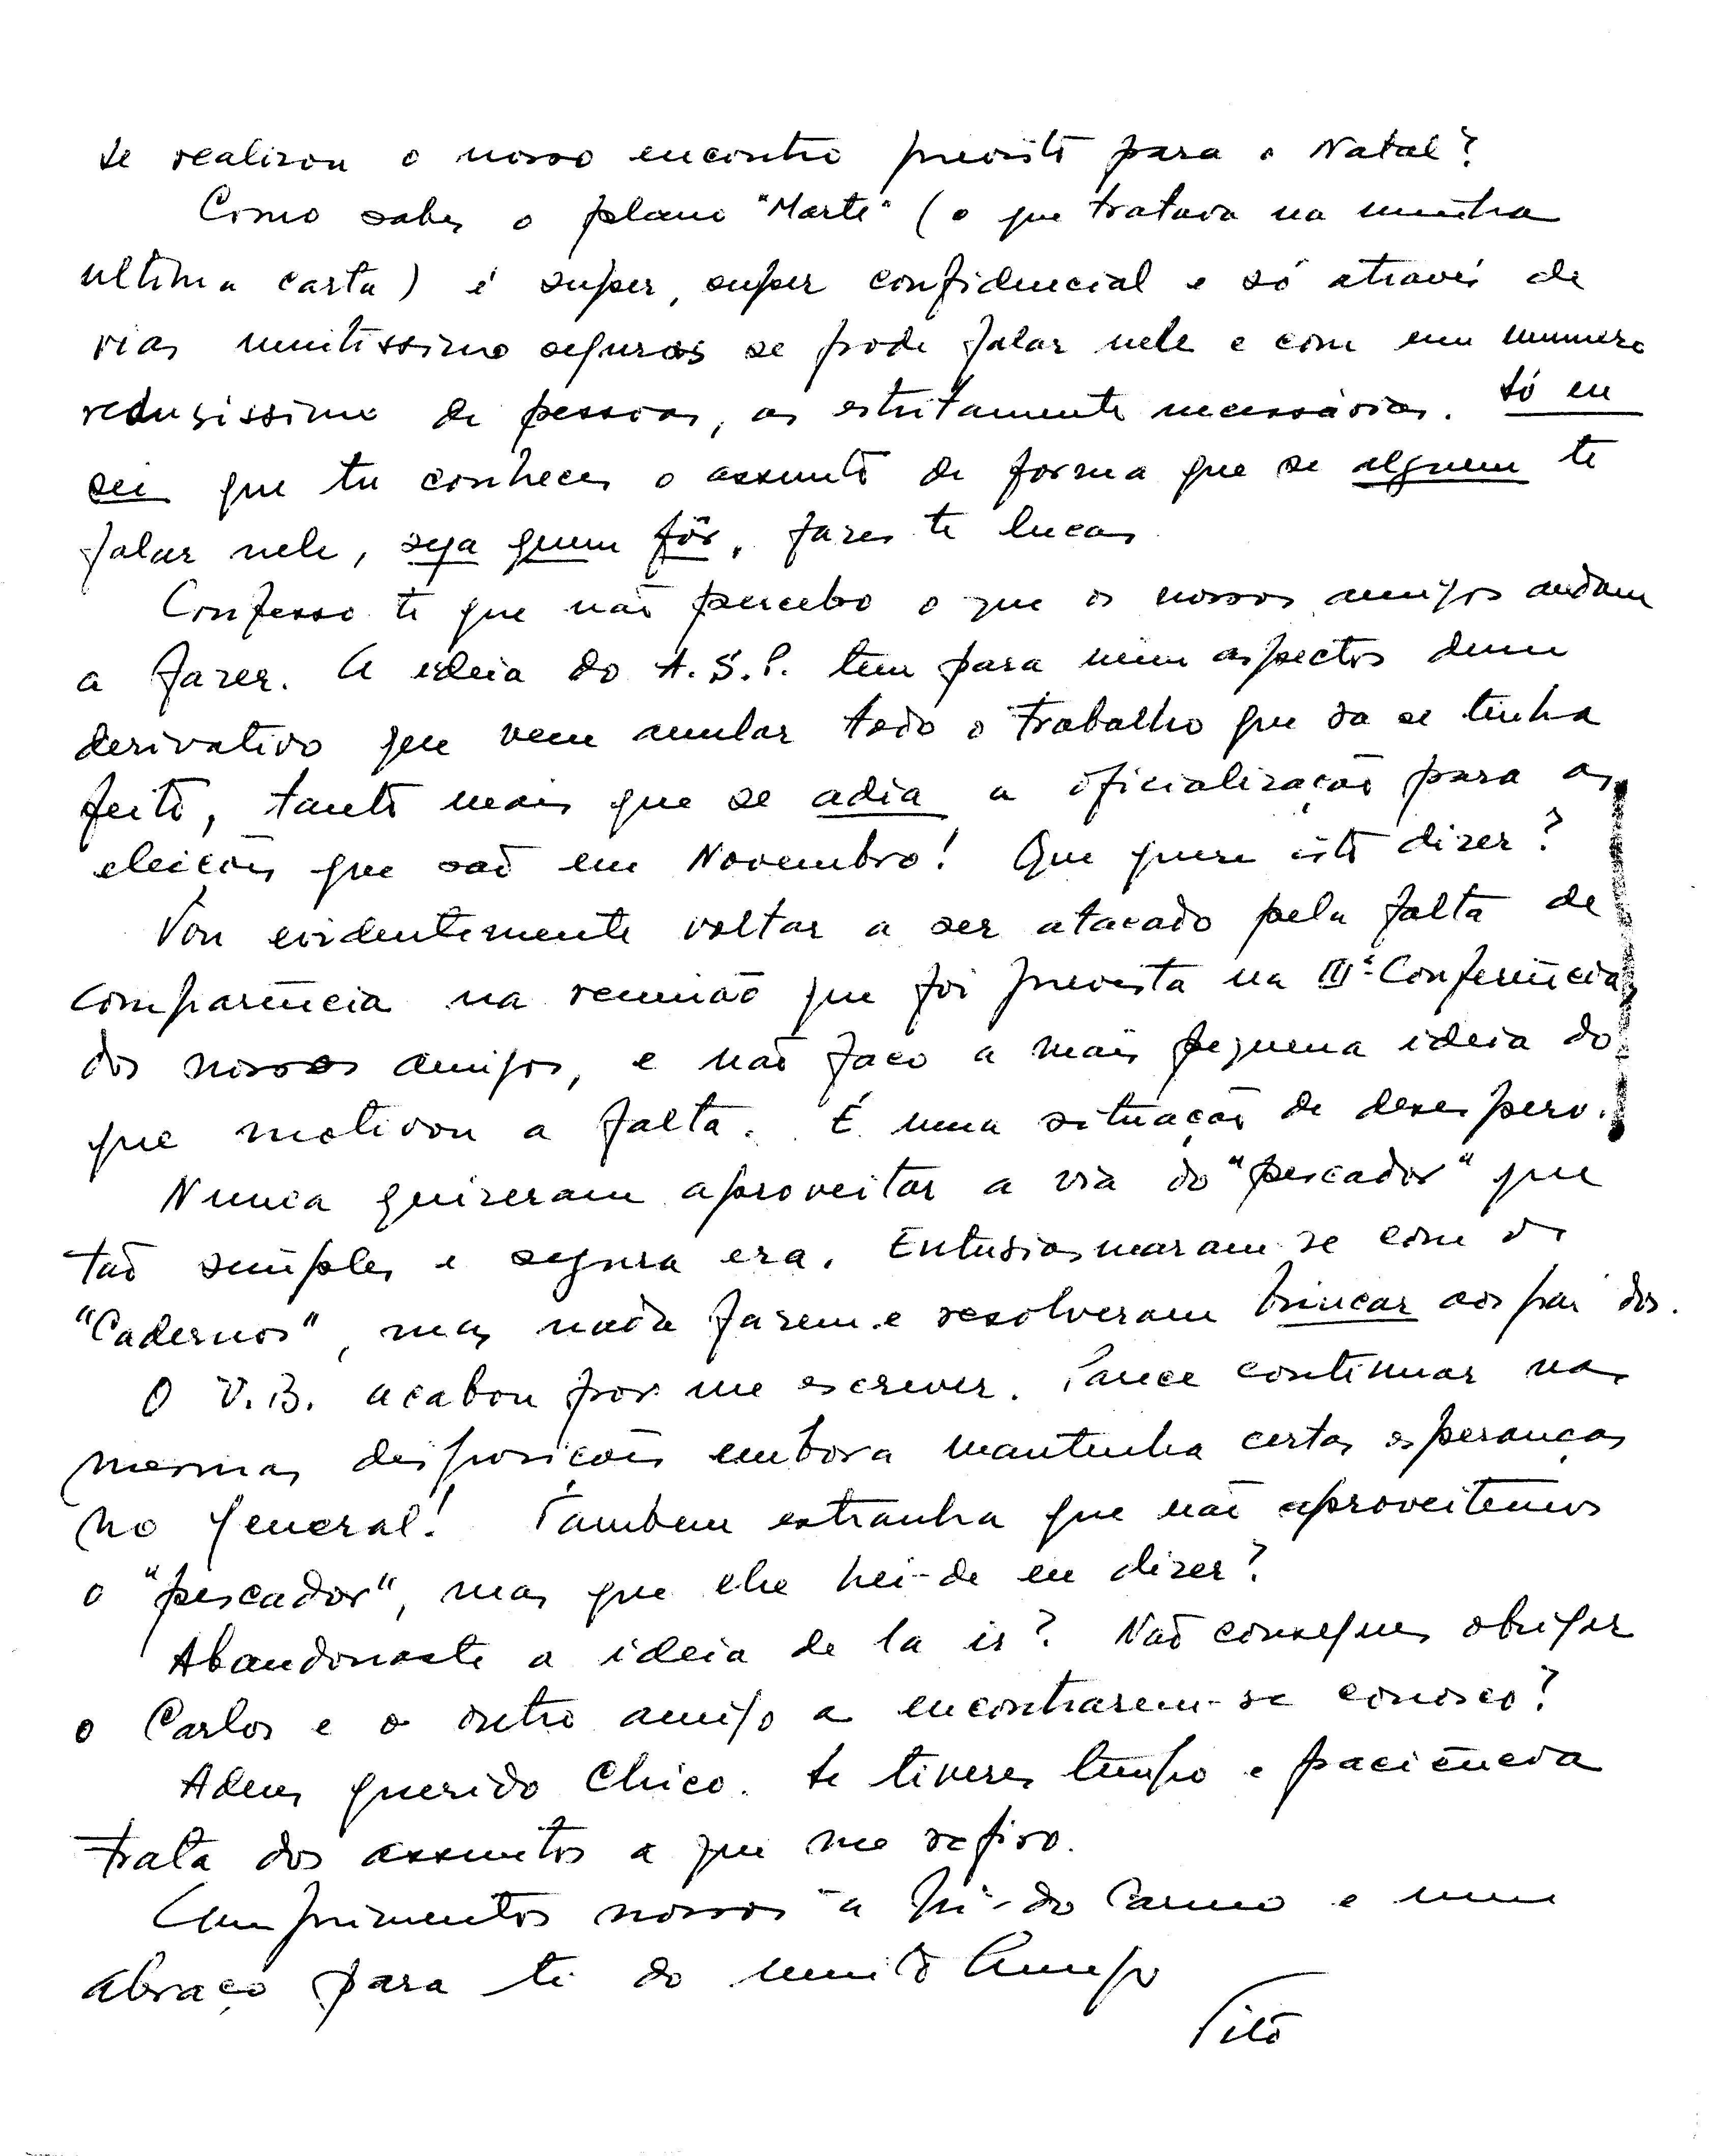 se realizou o nosso encontro previsto para o Natal?
Como sabes o plano "Marte" (o que tratava na minha
ultima carta) é super, super confidencial e só através de
vias muitissimo seguras se pode falar nele e com um numero
redusissimo de pessoas, as estritamente necessárias. Só eu
sei que tu conheces o assunto de forma que se alguem te
falar nele, seja quem fôr, fazes te lucas.
Confesso te que não percebo o que os nossos amigos andam
a fazer. A ideia do A.S.P. tem para mim aspectos dum
derivativo que vem anular todo o trabalho que já se tinha
feito, tanto mais que se adia a oficialização para as
eleições que são em Novembro! Que quere isto dizer?
Vou evidentemente voltar a ser atacado pela falta de
comparência na reunião que foi prevista na IIIª Conferência
dos nossos amigos, e não faço a mais pequena ideia do
que motivou a falta. É uma situação de desespero.
Nunca quizeram aproveitar a via do "pescador" que
tão simples e segura era. Entusiasmaram-se com os
"Cadernos", mas nada fazem e resolveram brincar aos partidos.
O V.B. acabou por me escrever. Parece continuar nas
mesmas disposições embora mantenha certas esperanças
no general! Tambem estranha que não aproveitemos
o "pescador", mas que lhe hei-de eu dizer?
Abandonaste a ideia de la ir? Não consegues obrigar
o Carlos e o outro amigo a encontrarem-se conosco?
Adeus querido Chico. Se tiveres tempo e paciência
trata dos assuntos a que me refiro.
Cumprimentos nossos à do Carmo e um
abraço para ti do muito Amigo
Tito